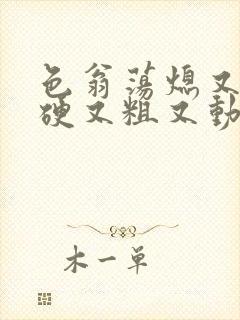 色翁荡熄又
硬又粗又動
木一单